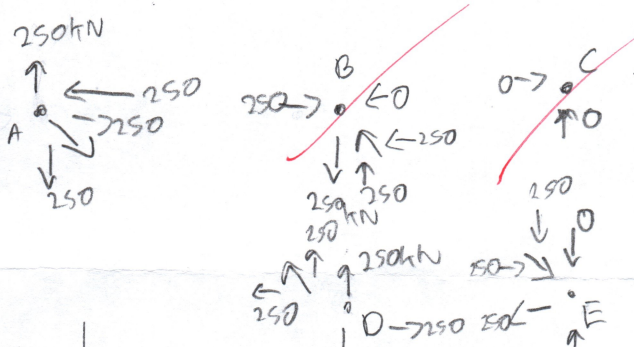 250kN
250
250
A
250
B
250
0
250
250
250
kN
C
0
0
250
kN
250kN
250
D
250
250
0
250
250
E